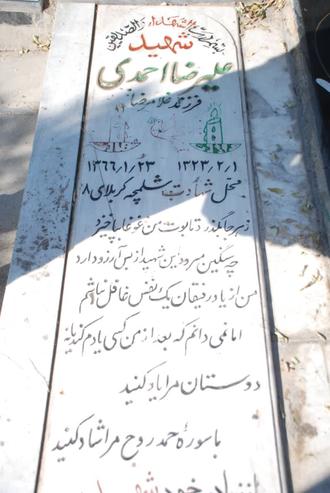 بسم رب الشهداء و الصدیقین
شهید
علیرضا احمدی
فرزند غلامرضا
۱۳۲۳/۲/۱ ۱۳۶۶/۱/۲۳
محل شهادت: شلمچه کربلای ۸
زهر جا بگذرد تابوت من غوغا بپا خیزد
چه سنگین میرود این شهید از بس آرزو دارد
من از یاد رفیقان یک نفس غافل نباشم
اما نمی دانم که بعد از من کسی یادم کند یا نه
دوستان مرا یاد کنید
با سورۀ حمد روح مرا شاد کنید